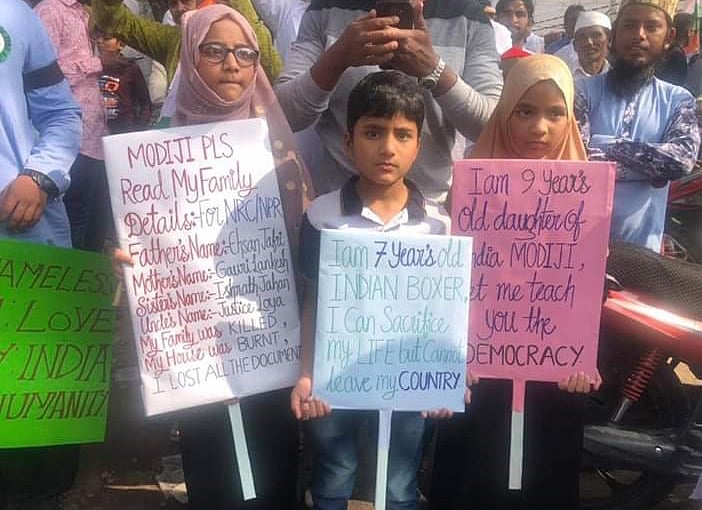 MODIJI PLS
Read My Family
Details:- For NRC/NPR
Father's Name:- Ehsan Jafri
Mother's Name:- Gauri Lankesh
Sister's Name:- Ishrath Jahan
Uncle's Name:- Justice Loya
My Family was KILLED,
My House was BURNT,
I LOST ALL THE DOCUMENT
I am 7 Year's old
INDIAN BOXER,
I Can Sacrifice
my LIFE but Cannot
leave my COUNTRY
I am 9 Year's
old daughter of
ndia MODIJI,
et me teach
you the
DEMOCRACY
AMELESS
LOVE
INDIA
UMANITY